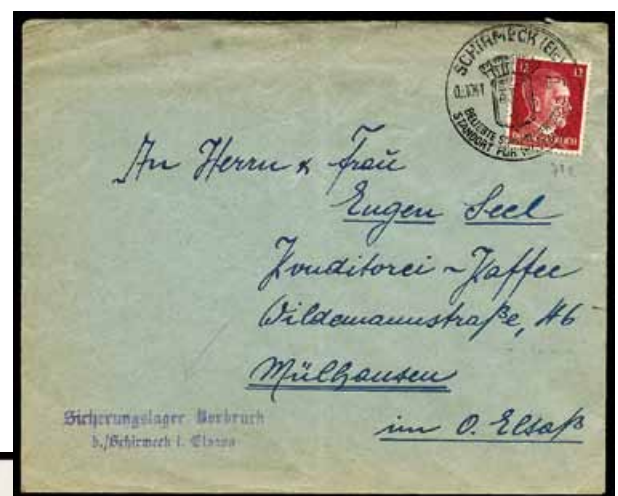 SCHIRMECK (Els.)
BELIEBTE
STANDORT FÜR
12 12
An Herrn & Frau
Eugen Seel
Konditorei ~ Kaffee
Wildemannstraße, 46
Mülhausen
im O. Elsaß
Sicherungslager Vorbruck
b./Schirmeck i. Elsass